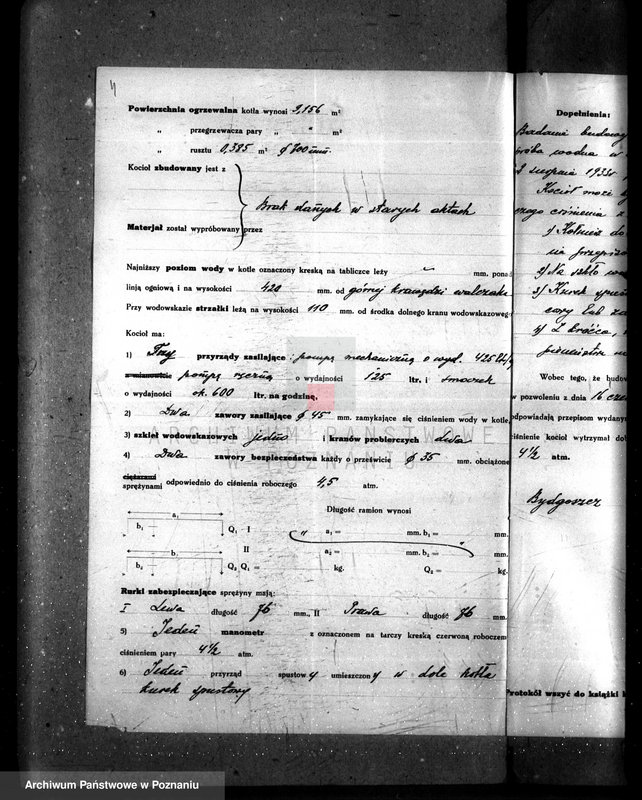 4
Powierzchnia ogrzewalna kotła wynosi 9,156 m²
„ przegrzewacza pary „ " m²
„ rusztu 0,385 m² ø 700 mm.
Kocioł zbudowany jest z
Brak danych w starych aktach
Materjał został wypróbowany przez
Najniższy poziom wody w kotle oznaczony kreską na tabliczce leży mm. pona
linją ogniową i na wysokości 420 mm. od górnej krawędzi walczaka
Przy wodowskazie strzałki leżą na wysokości 110 mm. od środka dolnego kranu wodowskazoweg
Kocioł ma:
1) Trzy przyrządy zasilające: pompą mechaniczną o wyd. 425
pompą ręczną o wydajności 125 ltr. i smoczek
o wydajności ok. 600 ltr. na godzinę,
2) Dwa zawory zasilające ø 45 mm. zamykające się ciśnieniem wody w kotle,
3) szkieł wodowskazowych jedno i kranów probierczych dwa
4) Dwa zawory bezpieczeństwa każdy o prześwicie ø 35 mm. obciążone
ciężarami
sprężynami odpowiednio do ciśnienia roboczego 4,5 atm.
Długość ramion wynosi
a₁ b₁ Q₁ I a₁ = mm. b₁ = mm.
II
b₁ b₂ Q₂ a₂ = mm. b₂ = mm.
Q₁ = kg. Q₂ = kg.
Rurki zabezpieczające sprężyny mają:
I Lewa długość 76 mm., II Prawa długość 76 mm.
5) Jeden manometr z oznaczonem na tarczy kreską czerwoną roboczem
ciśnieniem pary 4½ atm.
6) Jeden przyrząd spustowy umieszczony w dole kotła
kurek spustowy
Dopełnienia:
Badanie budowy
próba wodna w
sierpnia 1935r
Kocioł może
czego ciśnienia
1) Kołnierz do
nia przepis
2) Na szkło
3) Kurek
4) Z
Wobec tego, że budow
w pozwoleniu z dnia 16
odpowiadają przepisom wydanym
ciśnienie kocioł wytrzymał dob
4½ atm.
Bydgoszcz
Protokół wszyć do książki k
ARCHIWUM PAŃSTWOWE
W POZNANIU
Archiwum Państwowe w Poznaniu